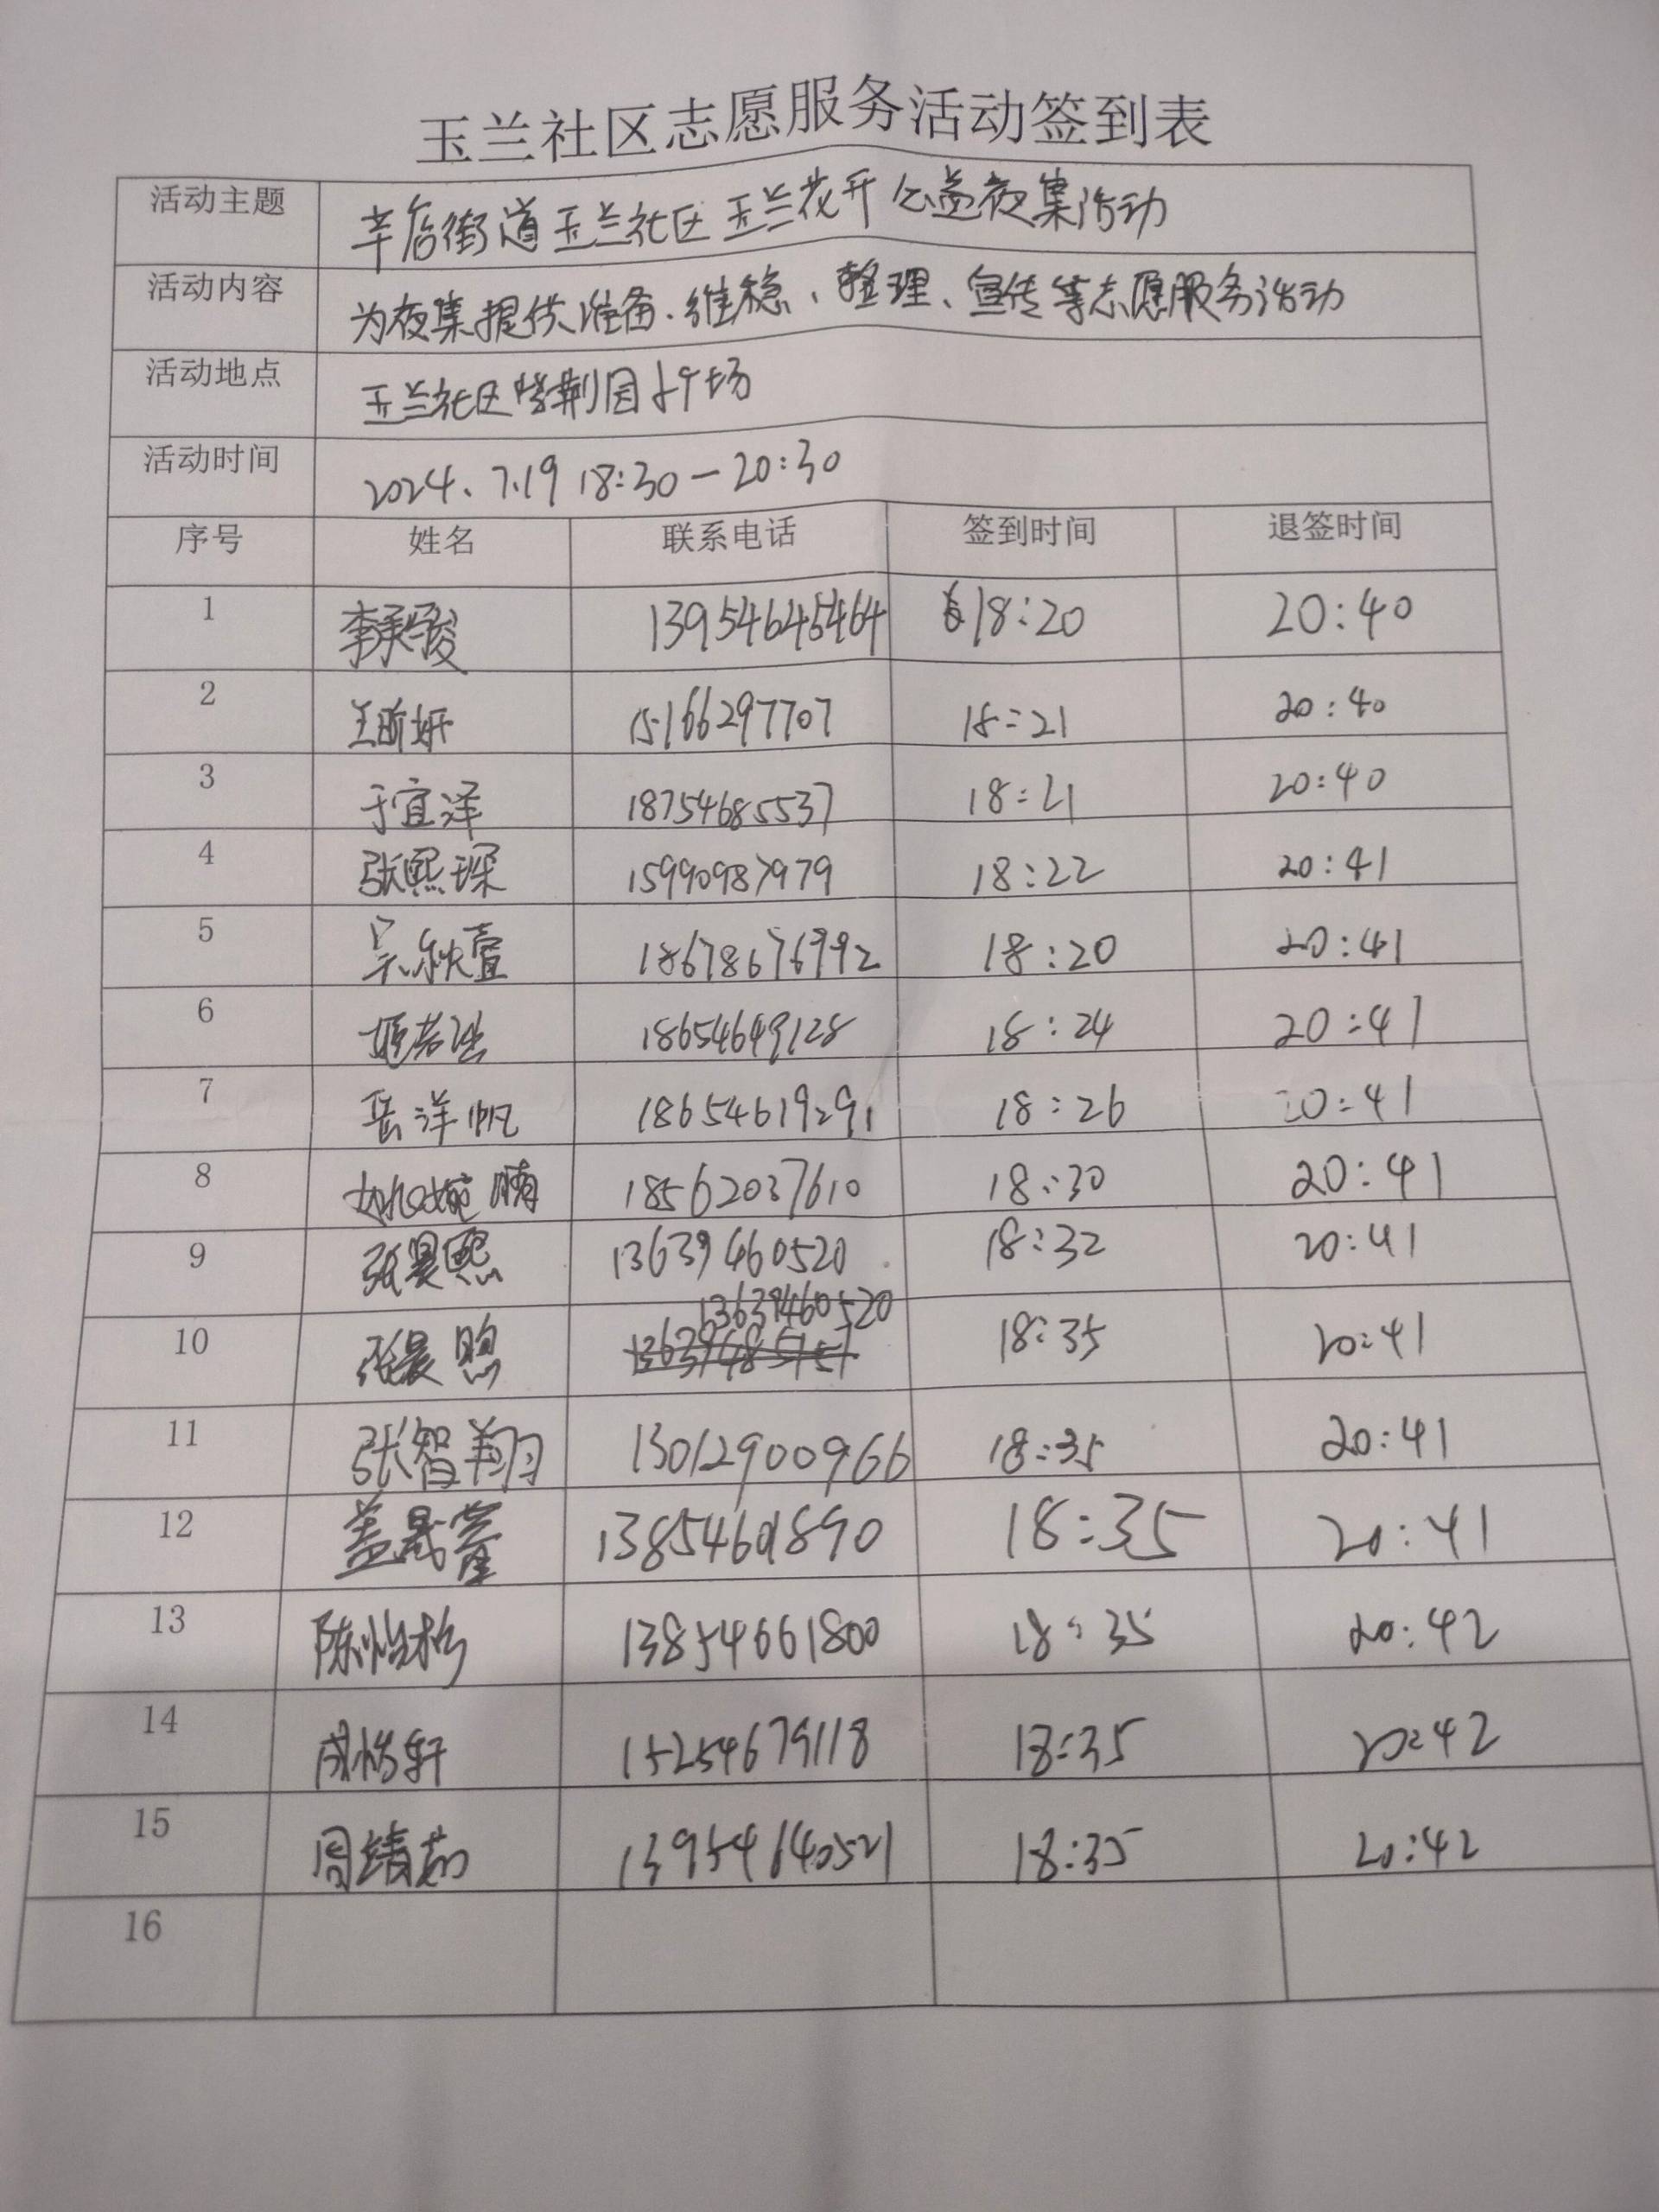 玉兰社区志愿服务活动签到表
活动主题 辛店街道玉兰社区玉兰花开公益夜集活动
活动内容 为夜集提供准备、维稳、整理、宣传等志愿服务活动
活动地点 玉兰社区紫荆园小广场
活动时间 2024、7.19 18:30—20:30
序号 姓名 联系电话 签到时间 退签时间
1 李承骏 13954645464 18:20 20:40
2 王昕妍 15166297707 18:21 20:40
3 于宜泽 18754685537 18:21 20:40
4 张熙琛 15990987979 18:22 20:41
5 吴秋萱 18678676992 18:20 20:41
6 18654649128 18:24 20:41
7 岳洋帆 18654619291 18:26 20:41
8 18562037610 18:30 20:41
9 张昊熙 13639460520 18:32 20:41
10 张晨煦 13639460520 18:35 20:41
11 张智翔 13012900966 18:35 20:41
12 盖晟萱 18:35 20:41
13 13854661800 18:35 20:42
14 成怡轩 15254679118 18:35 20:42
15 周靖茹 13954640521 18:35 20:42
16